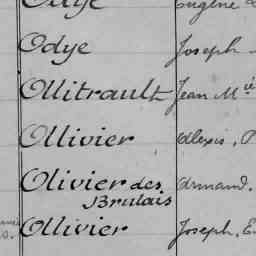 Odye Joseph
Ollitrault Jean M^ie
Ollivier Alexis, P
Olivier des Armand.
Brulais
Ollivier Joseph, E